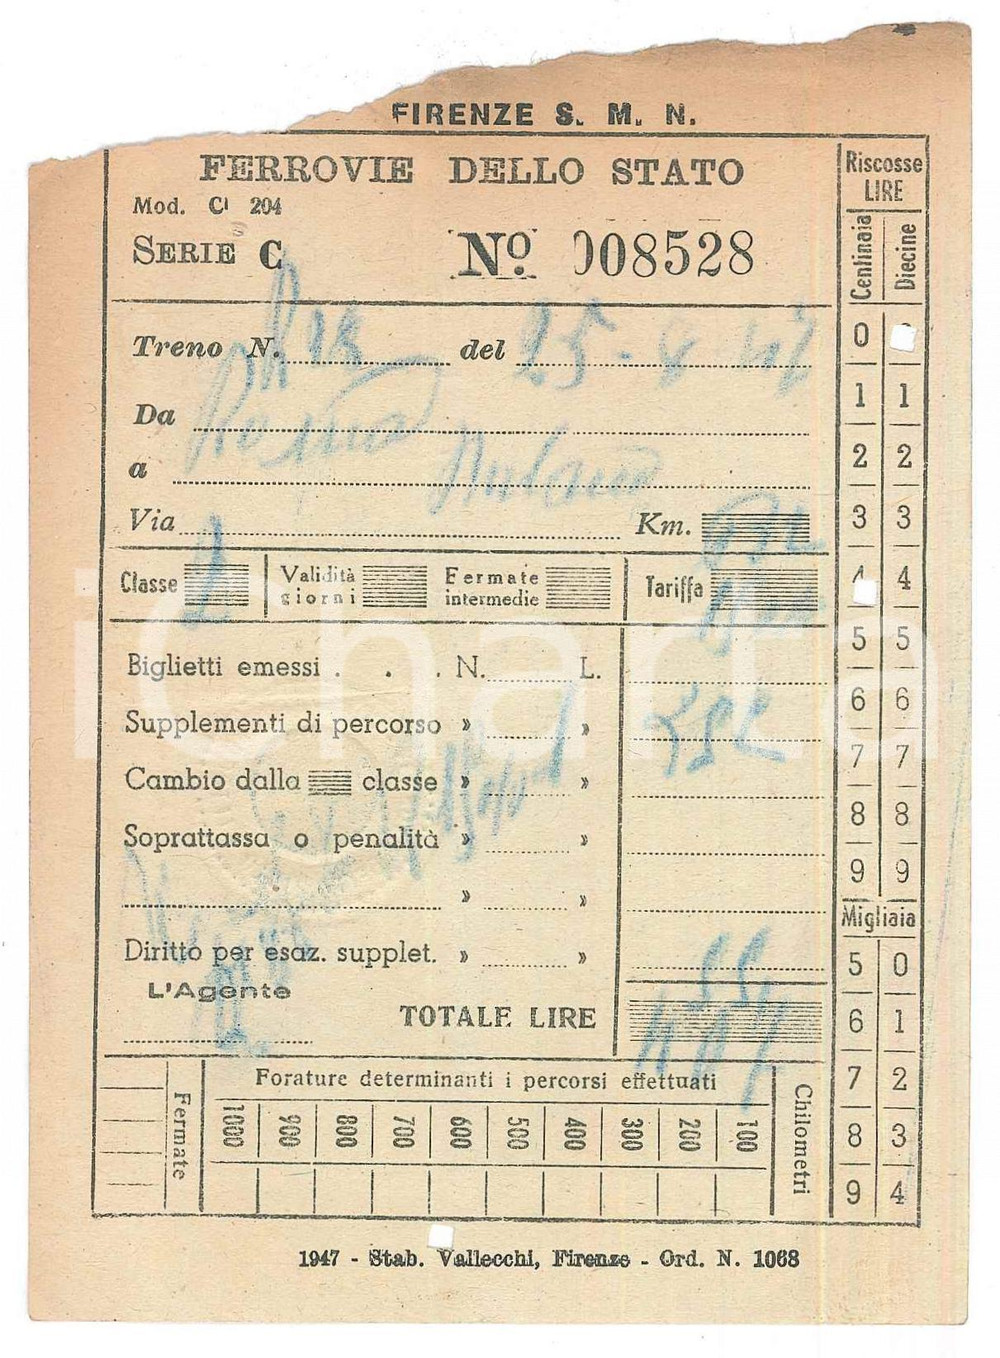 FIRENZE S. M. N.
FERROVIE DELLO STATO
Mod. CI 204
SERIE C No. 008528
Treno N. del 25-8 47
Da Roma
a Milano
Via Km.
Classe 2 Validità giorni Fermate intermedie Tariffa
Biglietti emessi . . . N. L.
Supplementi di percorso » »
Cambio dalla classe » »
Soprattassa o penalità » »
» »
Diritto per esaz. supplet. » »
L'Agente
TOTALE LIRE
Riscosse LIRE
Centinaia Diecine
0
1 1
2 2
3 3
4 4
5 5
6 6
7 7
8 8
9 9
Migliaia
5 0
6 1
7 2
8 3
9 4
Forature determinanti i percorsi effettuati
Fermate 1000 900 800 700 600 500 400 300 200 100 Chilometri
1947 - Stab. Vallecchi, Firenze - Ord. N. 1068